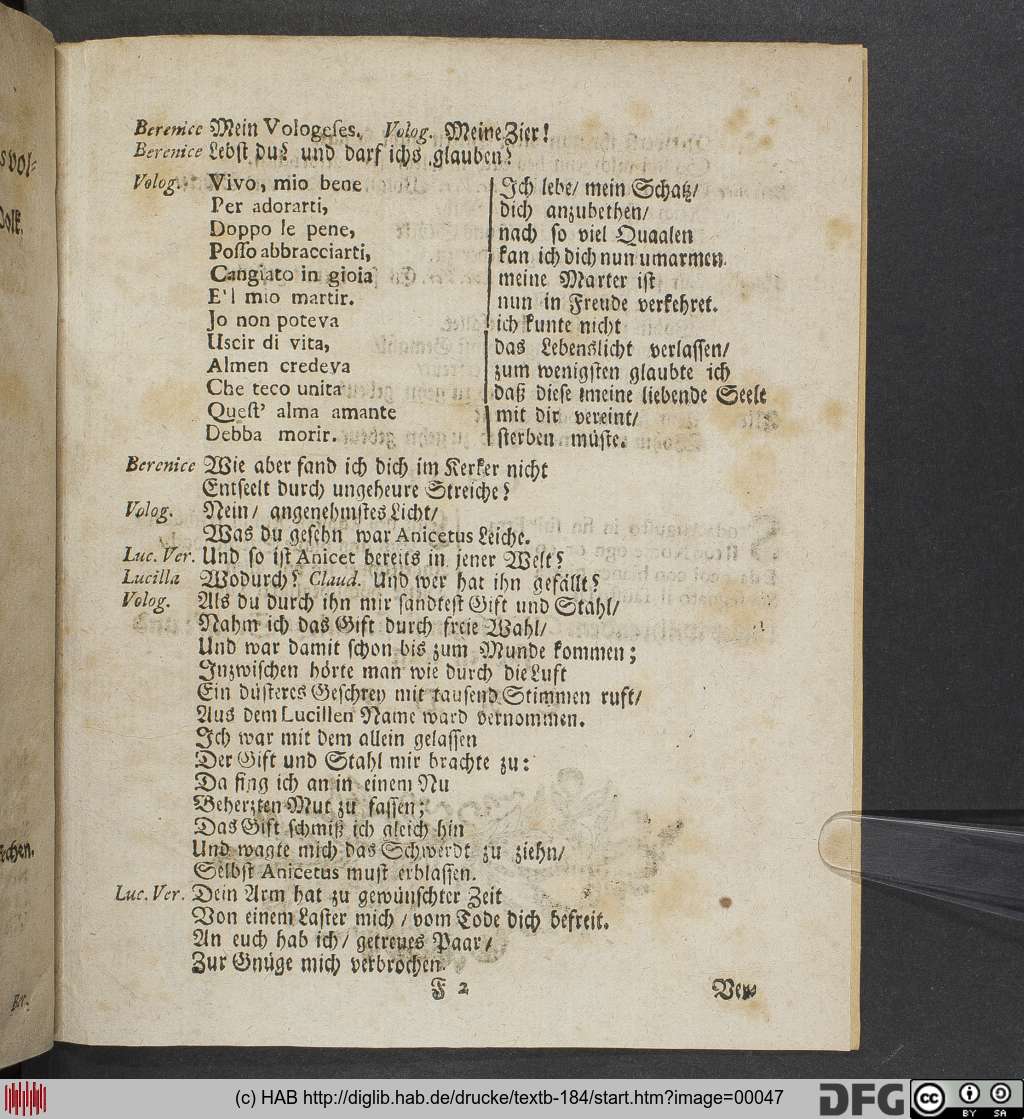 Berenice Mein Vologeses. Volog. Meine Zier!
Berenice Lebst du? und darf ichs glauben?
Volog. Vivo, mio bene
Per adorarti,
Doppo le pene,
Posso abbracciarti,
Cangiato in gioia
E'l mio martir.
Jo non poteva
Uscir di vita,
Almen credeva
Che teco unita
Quest' alma amante
Debba morir.
Ich lebe/ mein Schatz/
dich anzubethen/
nach so viel Quaalen
kan ich dich nun umarmen.
meine Marter ist
nun in Freude verkehret.
ich kunte nicht
das Lebenslicht verlassen/
zum wenigsten glaubte ich
daß diese meine liebende Seele
mit dir vereint/
sterben müste.
Berenice Wie aber fand ich dich im Kerker nicht
Entseelt durch ungeheure Streiche?
Volog. Nein/ angenehmstes Licht/
Was du gesehn war Anicetus Leiche.
Luc. Ver. Und so ist Anicet bereits in jener Welt?
Lucilla Wodurch? Claud. Und wer hat ihn gefällt?
Volog. Als du durch ihn mir sandtest Gift und Stahl/
Nahm ich das Gift durch freie Wahl/
Und war damit schon bis zum Munde kommen;
Inzwischen hörte man wie durch die Luft
Ein düsteres Geschrey mit tausend Stimmen ruft/
Aus dem Lucillen Name ward vernommen.
Ich war mit dem allein gelassen
Der Gift und Stahl mir brachte zu:
Da fing ich an in einem Nu
Beherzten Mut zu fassen;
Das Gift schmiß ich gleich hin
Und wagte mich das Schwerdt zu ziehn/
Selbst Anicetus must erblassen.
Luc. Ver. Dein Arm hat zu gewünschter Zeit
Von einem Laster mich / vom Tode dich befreit.
An euch hab ich/ getreues Paar/
Zur Gnüge mich verbrochen.
F 2
Ver-
(c) HAB http://diglib.hab.de/drucke/textb-184/start.htm?image=00047
DFG
cc BY SA